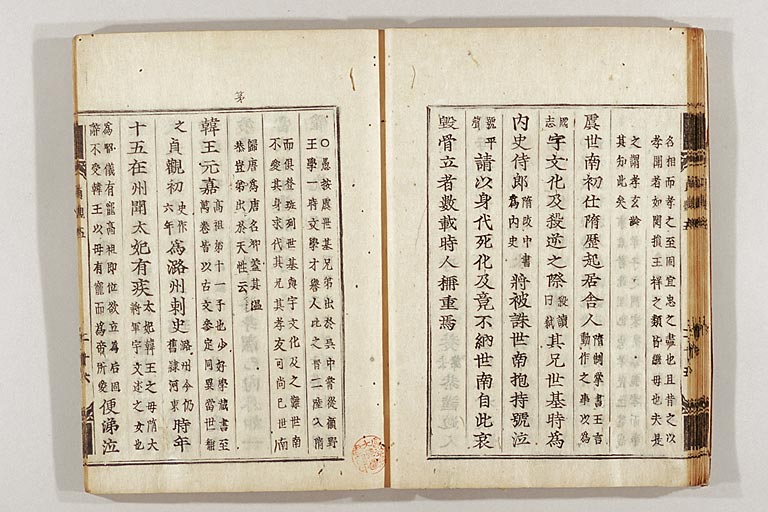 名相而孝之至固宜忠之盡也且昔之以
孝聞者如閔損王祥之類皆繼母也夫是
之謂孝玄齡
其知此矣
虞世南初仕隋歷起居舍人隋制掌書王言動作之事次為
國志宇文化及殺逆之際殺讀曰弒其兄世基時為
內史侍郎隋改中書為內史將被誅世南抱持號泣
號平聲請以身代死化及竟不納世南自此哀
毀骨立者數載時人稱重焉
○愚按虞世基兄弟出於吳中嘗從顧野
王學一府文學才譽人比之晉二陸入隋
而俱登班列世基與宇文化及之難世南
不愛其身求代其兄其孝友可尚已世南
歸唐為唐名卿蓋其溫
恭豈弟出於天性云
韓王元嘉高祖第十一子也少好學藏書至萬卷皆以古文參定同異當世稱
之貞觀初史作六年為潞州刺史潞州今仍舊隸河東時年
十五在州聞太妃有疾太妃韓王之母隋大將軍宇文述之女也
為昭儀有寵高祖即位欲立為后固辭不受韓王以母有寵而為帝所愛便涕泣